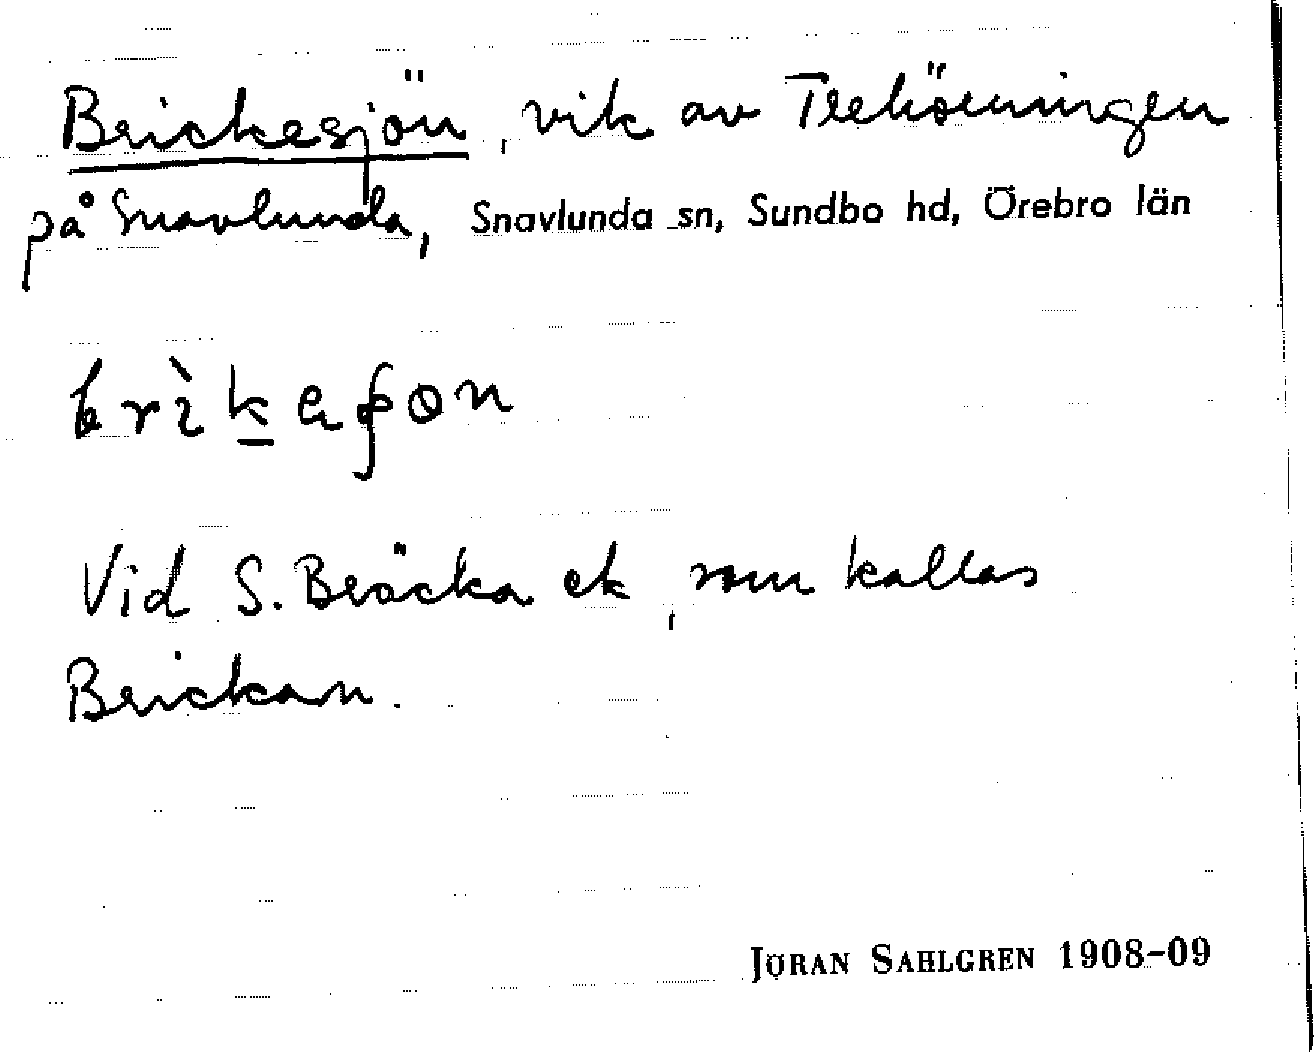 Brickesjön, vik av Trehörningen
på Snavlunda, Snavlunda sn, Sundbo hd, Örebro län
Vid S. Bräcka ek, som kallas
Brickan.
JÖRAN SAHLGREN 1908-09